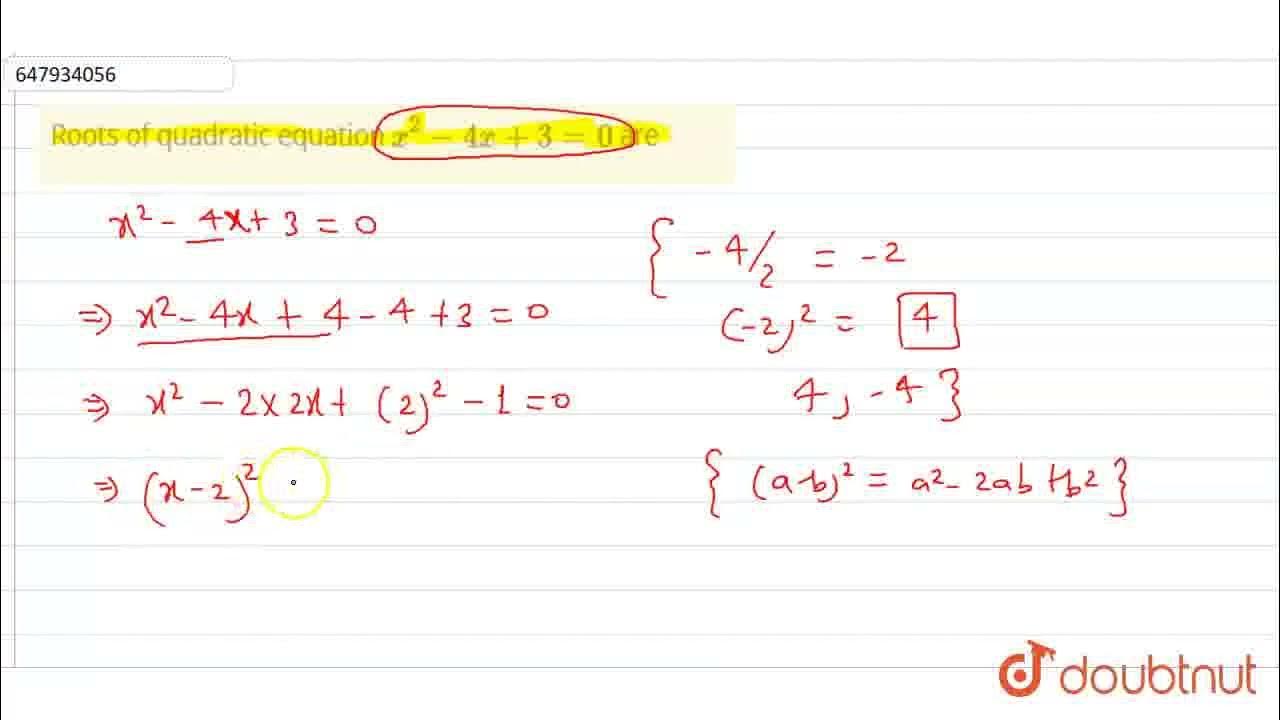 647934056
Roots of quadratic equation x² − 4x + 3 = 0 are
x² - 4x + 3 = 0
{ - 4/2 = -2
⇒ x² - 4x + 4 - 4 + 3 = 0
(-2)² = 4
⇒ x² - 2 × 2x + (2)² - 1 = 0
4, -4 }
⇒ (x - 2)²
{ (a-b)² = a² - 2ab + b² }
doubtnut